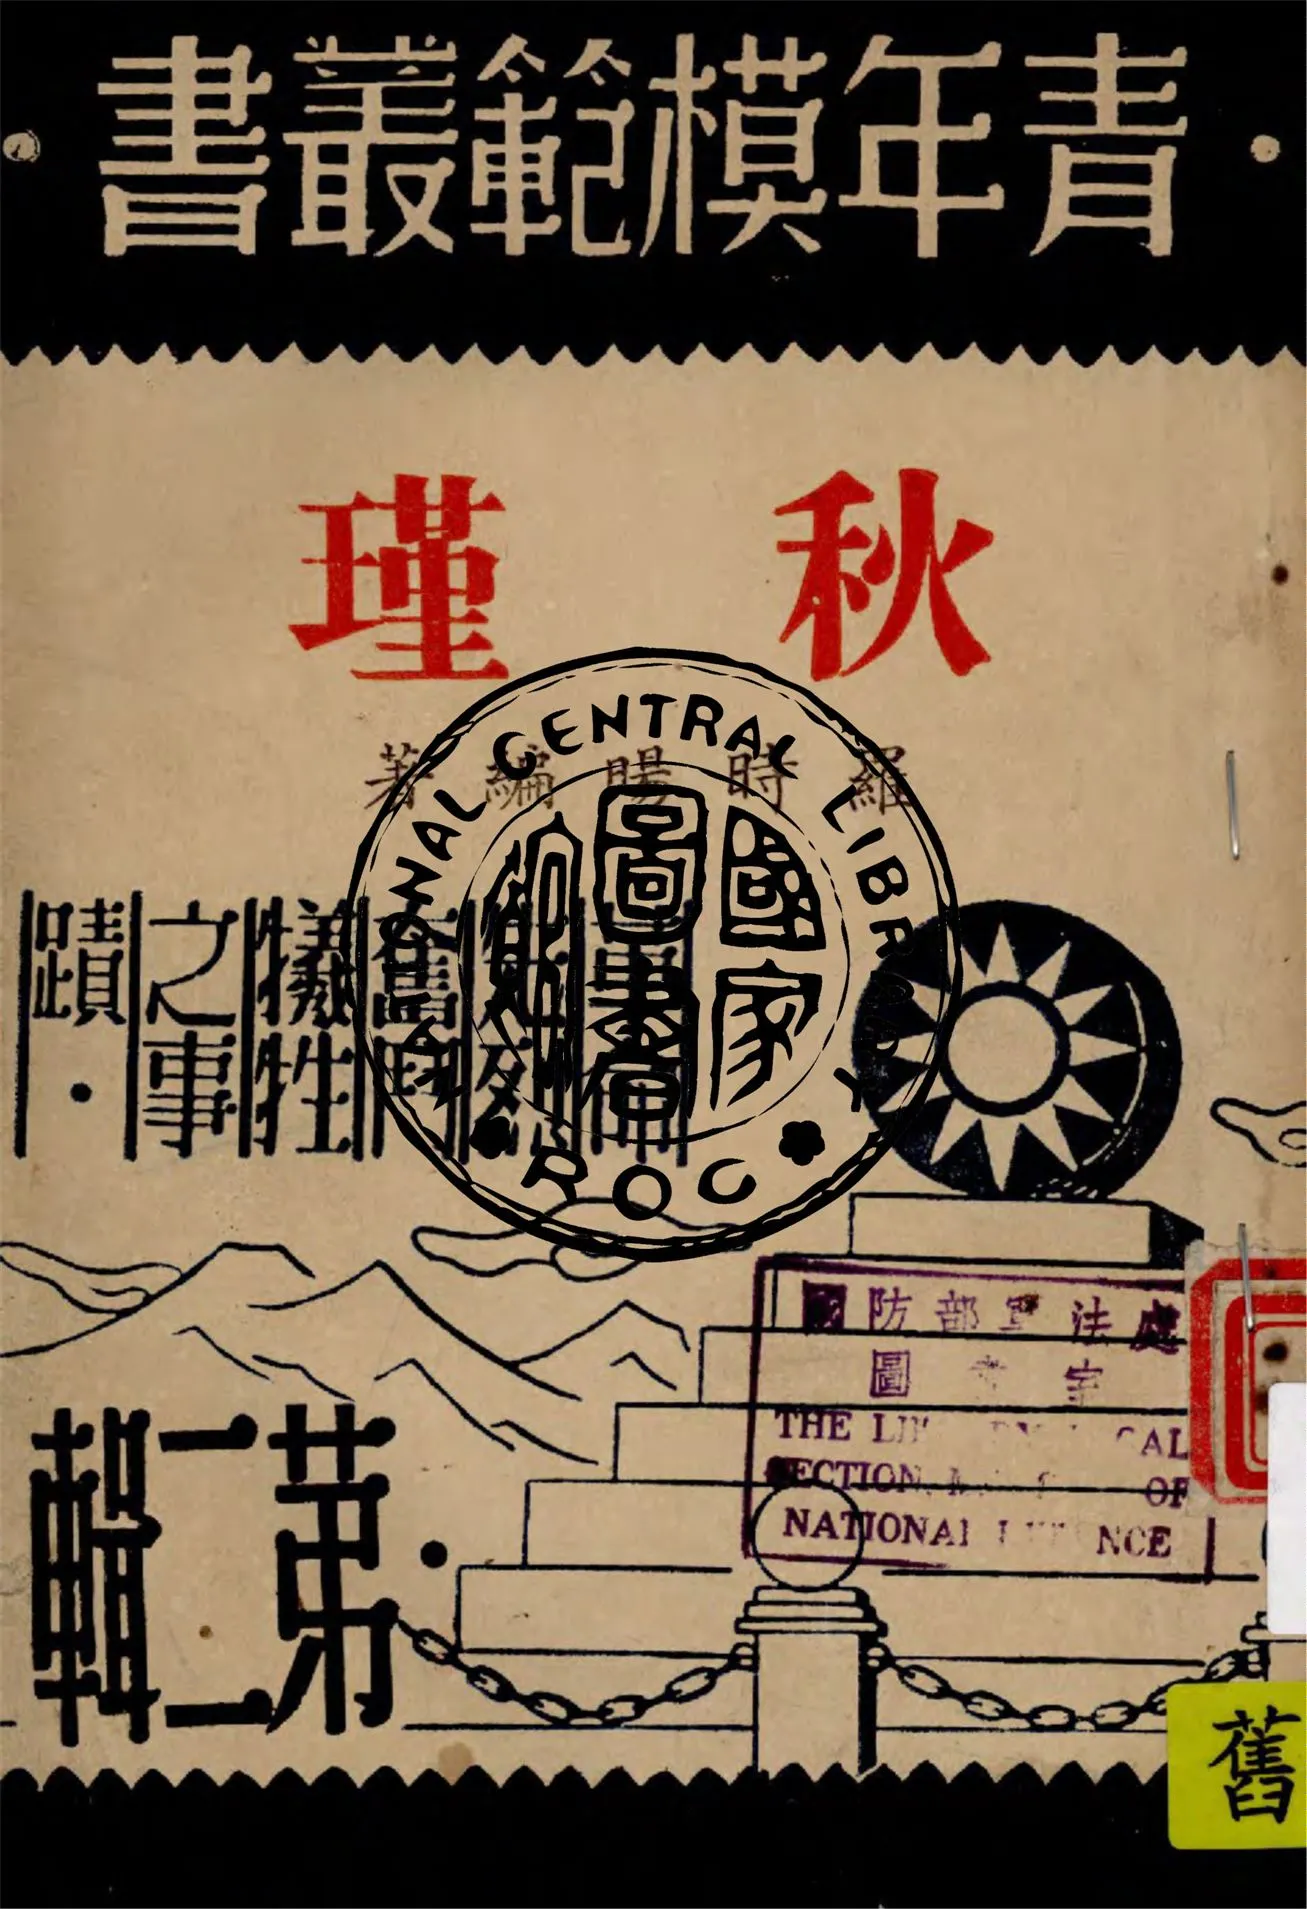 青年模範叢書
秋瑾
羅時暘編著
革命先烈奮鬥犧牲之事蹟
第二輯
NATIONAL CENTRAL LIBRARY
國家圖書館
ROC
國防部軍法處
圖書室
THE
SECTION OF
NATIONAL
舊